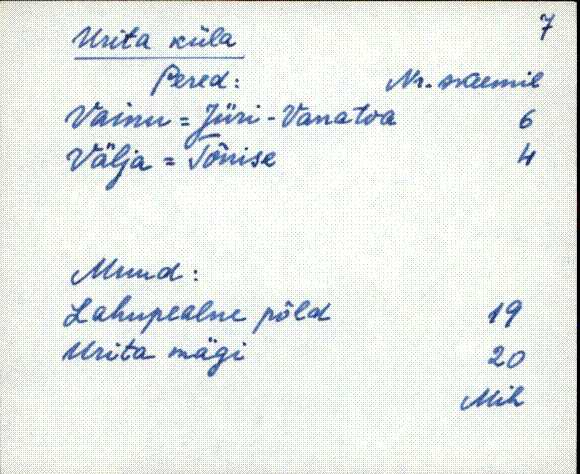 7
Urita küla
Pered: Nr. skeemil
Vainu = Jüri-Vanatoa 6
Välja = Tõnise 4
Muud:
Lahupealne põld 19
Urita mägi 20
Mih